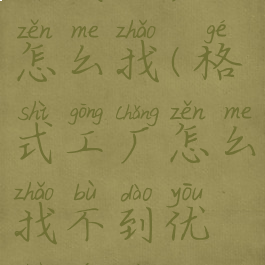 zěn me zhǎo gé
怎么找(格
shì gōng chǎng zěn me
式工厂怎么
zhǎo bù dào yōu
找不到优